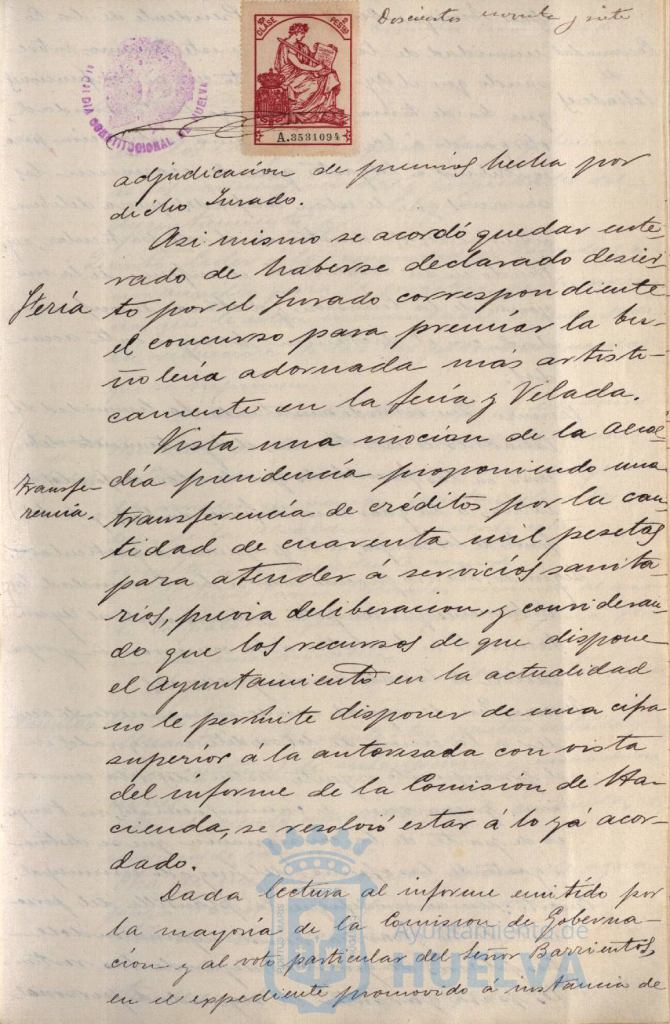 Doscientos noventa y siete
10ª CLASE 2 PESETAS
A.3531094
ALCALDIA CONSTITUCIONAL DE HUELVA
adjudicación de premios hecha por
dicho Jurado.
Asi mismo se acordó quedar ente-
rado de haberse declarado desier-
Feria
to por el Jurado correspondiente
el concurso para premiar la bu-
ñoleria adornada más artisti-
camente en la feria y Velada.
Vista una moción de la Alcal-
Transfe-
rencia.
día presidencia proponiendo una
transferencia de créditos por la can-
tidad de cuarenta mil pesetas
para atender á servicios sanita-
rios, previa deliberacion, y consideran-
do que los recursos de que dispone
el Ayuntamiento en la actualidad
no le permite disponer de una cifra
superior á la autorisada con vista
del informe de la Comisión de Ha-
cienda, se resolvió estar á lo yá acor-
dado.
Dada lectura al informe emitido por
la mayoría de la Comision de Goberna-
cion y al voto particular del Señor Barrientos,
en el expediente promovido a instancia de
Ayuntamiento de
HUELVA